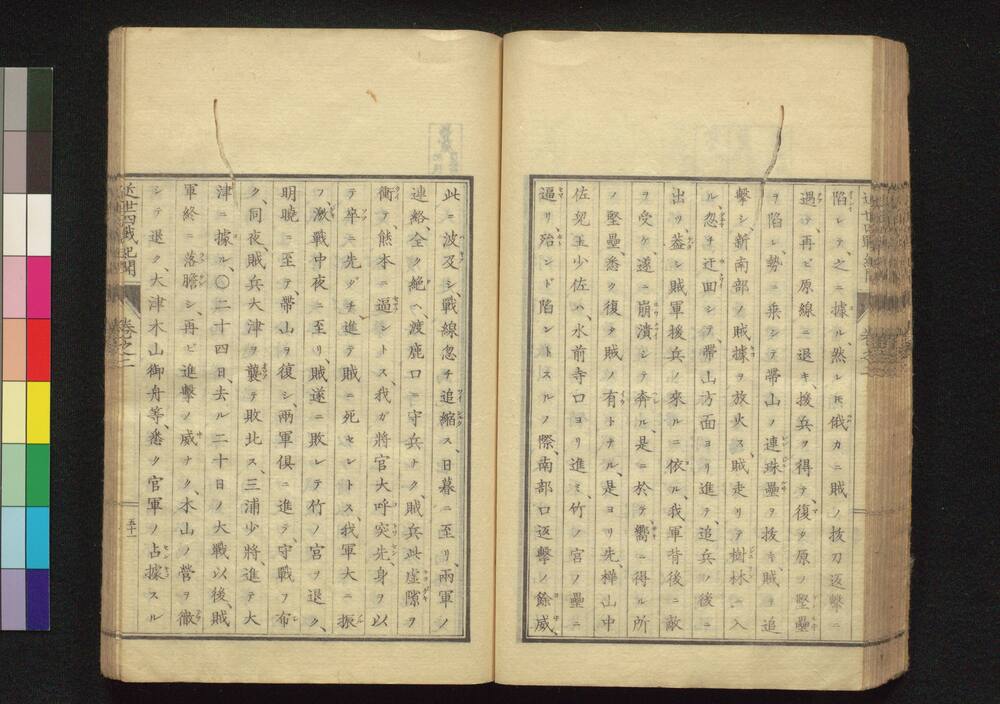 陷レテ、之ニ據ル、然レ𪜈俄カニ賊ノ抜刀返擊ニ
過ヒ、再ビ原線ニ退キ、援兵ヲ得テ、復タ原ノ堅壘
ヲ陷レ、勢ニ乗シテ帶山ノ連珠壘ヲ抜キ、賊ヲ追
擊シ、新南部ノ賊據ヲ放火ス、賊走リテ樹林ニ入
ル、忽チ迂回シテ、帶山方面ヨリ進テ、追兵ノ後ニ
出ツ、蓋シ賊軍援兵ノ來ルニ依ル、我軍背後ニ敵
ヲ受ケ、遂ニ崩潰シテ奔ル、是ニ於テ嚮ニ得ル所
ノ堅壘、悉ク復タ賊ノ有トナル、是ヨリ先、樺山中
佐兒玉少佐ハ、水前寺口ヨリ進ミ、竹ノ宮ノ壘ニ
逼リ、殆ンド陷シントスルノ際、南部口返擊ノ餘威、
此ニ波及シ、戰線忽チ追縮ス、日暮ニ至リ、兩軍ノ
連絡、全ク絶ヘ、渡鹿口ニ守兵ナク、賊兵此虛隙ヲ
衝テ、熊本ニ逼ントス、我ガ將官大呼突先、身ヲ以
テ卒ニ先ダチ進テ賊ニ死セントス、我軍大ニ振
フ、激戰中夜ニ至リ、賊遂ニ敗レテ竹ノ宮ヲ退ク、
明曉ニ至テ、帶山ヲ復シ、兩軍俱ニ進テ、守戰ヲ布
ク、同夜、賊兵大津ヲ襲テ敗北ス、三浦少將、進テ大
津ニ據ル、〇二十四日、去ル二十日ノ大戰以後、賊
軍終ニ落膽シ、再ビ進擊ノ威ナク、木山ノ營ヲ徹
シテ退ク、大津木山御舟等、悉ク官軍ノ占據スル
近世四戰紀聞
卷之二
五十一